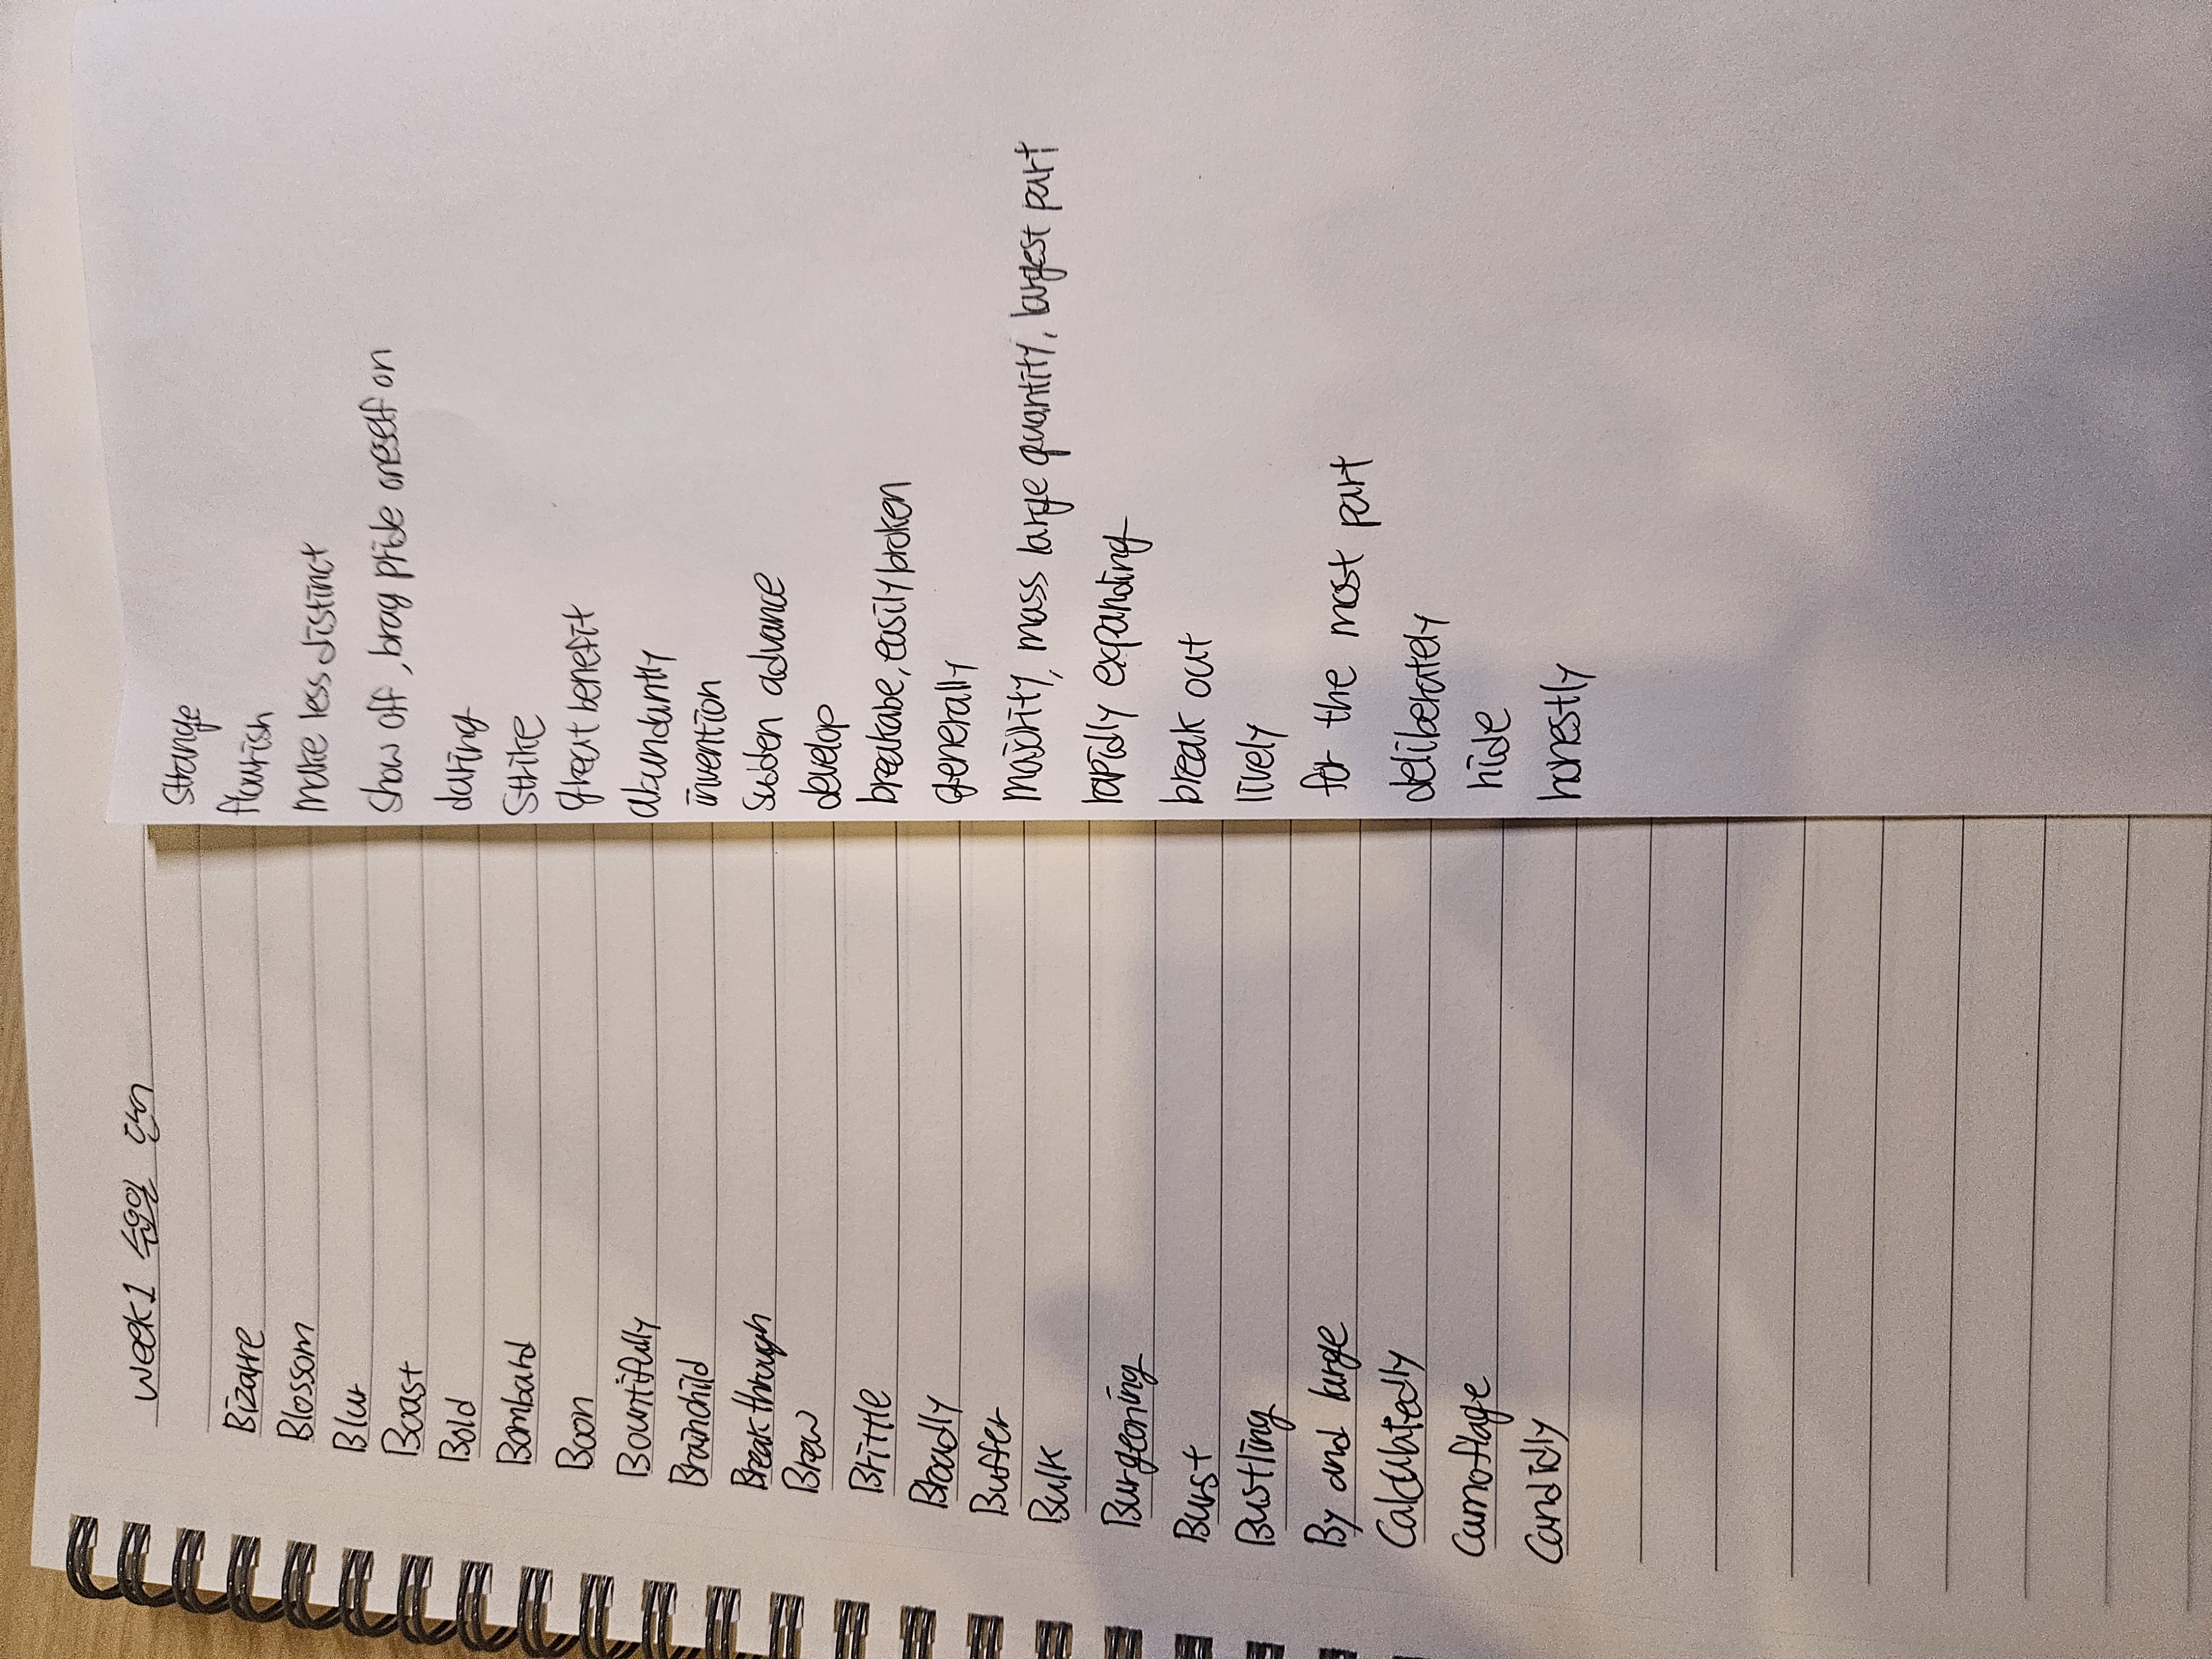 week 1 수요일 단어
Bizarre
Blossom
Blur
Boast
Bold
Bombard
Boon
Bountifully
Brainchild
Breakthrough
Brew
Brittle
Broadly
Buffer
Bulk
Burgeoning
Burst
Bustling
By and large
Calculatedly
Camoflage
Candidly
strange
flourish
make less distinct
show off, brag pride oneself on
daring
strike
great benefit
abundantly
invention
sudden advance
develop
breakabe, easily broken
generally
majority, mass large quantity, largest part
rapidly expanding
break out
lively
for the most part
deliberately
hide
honestly